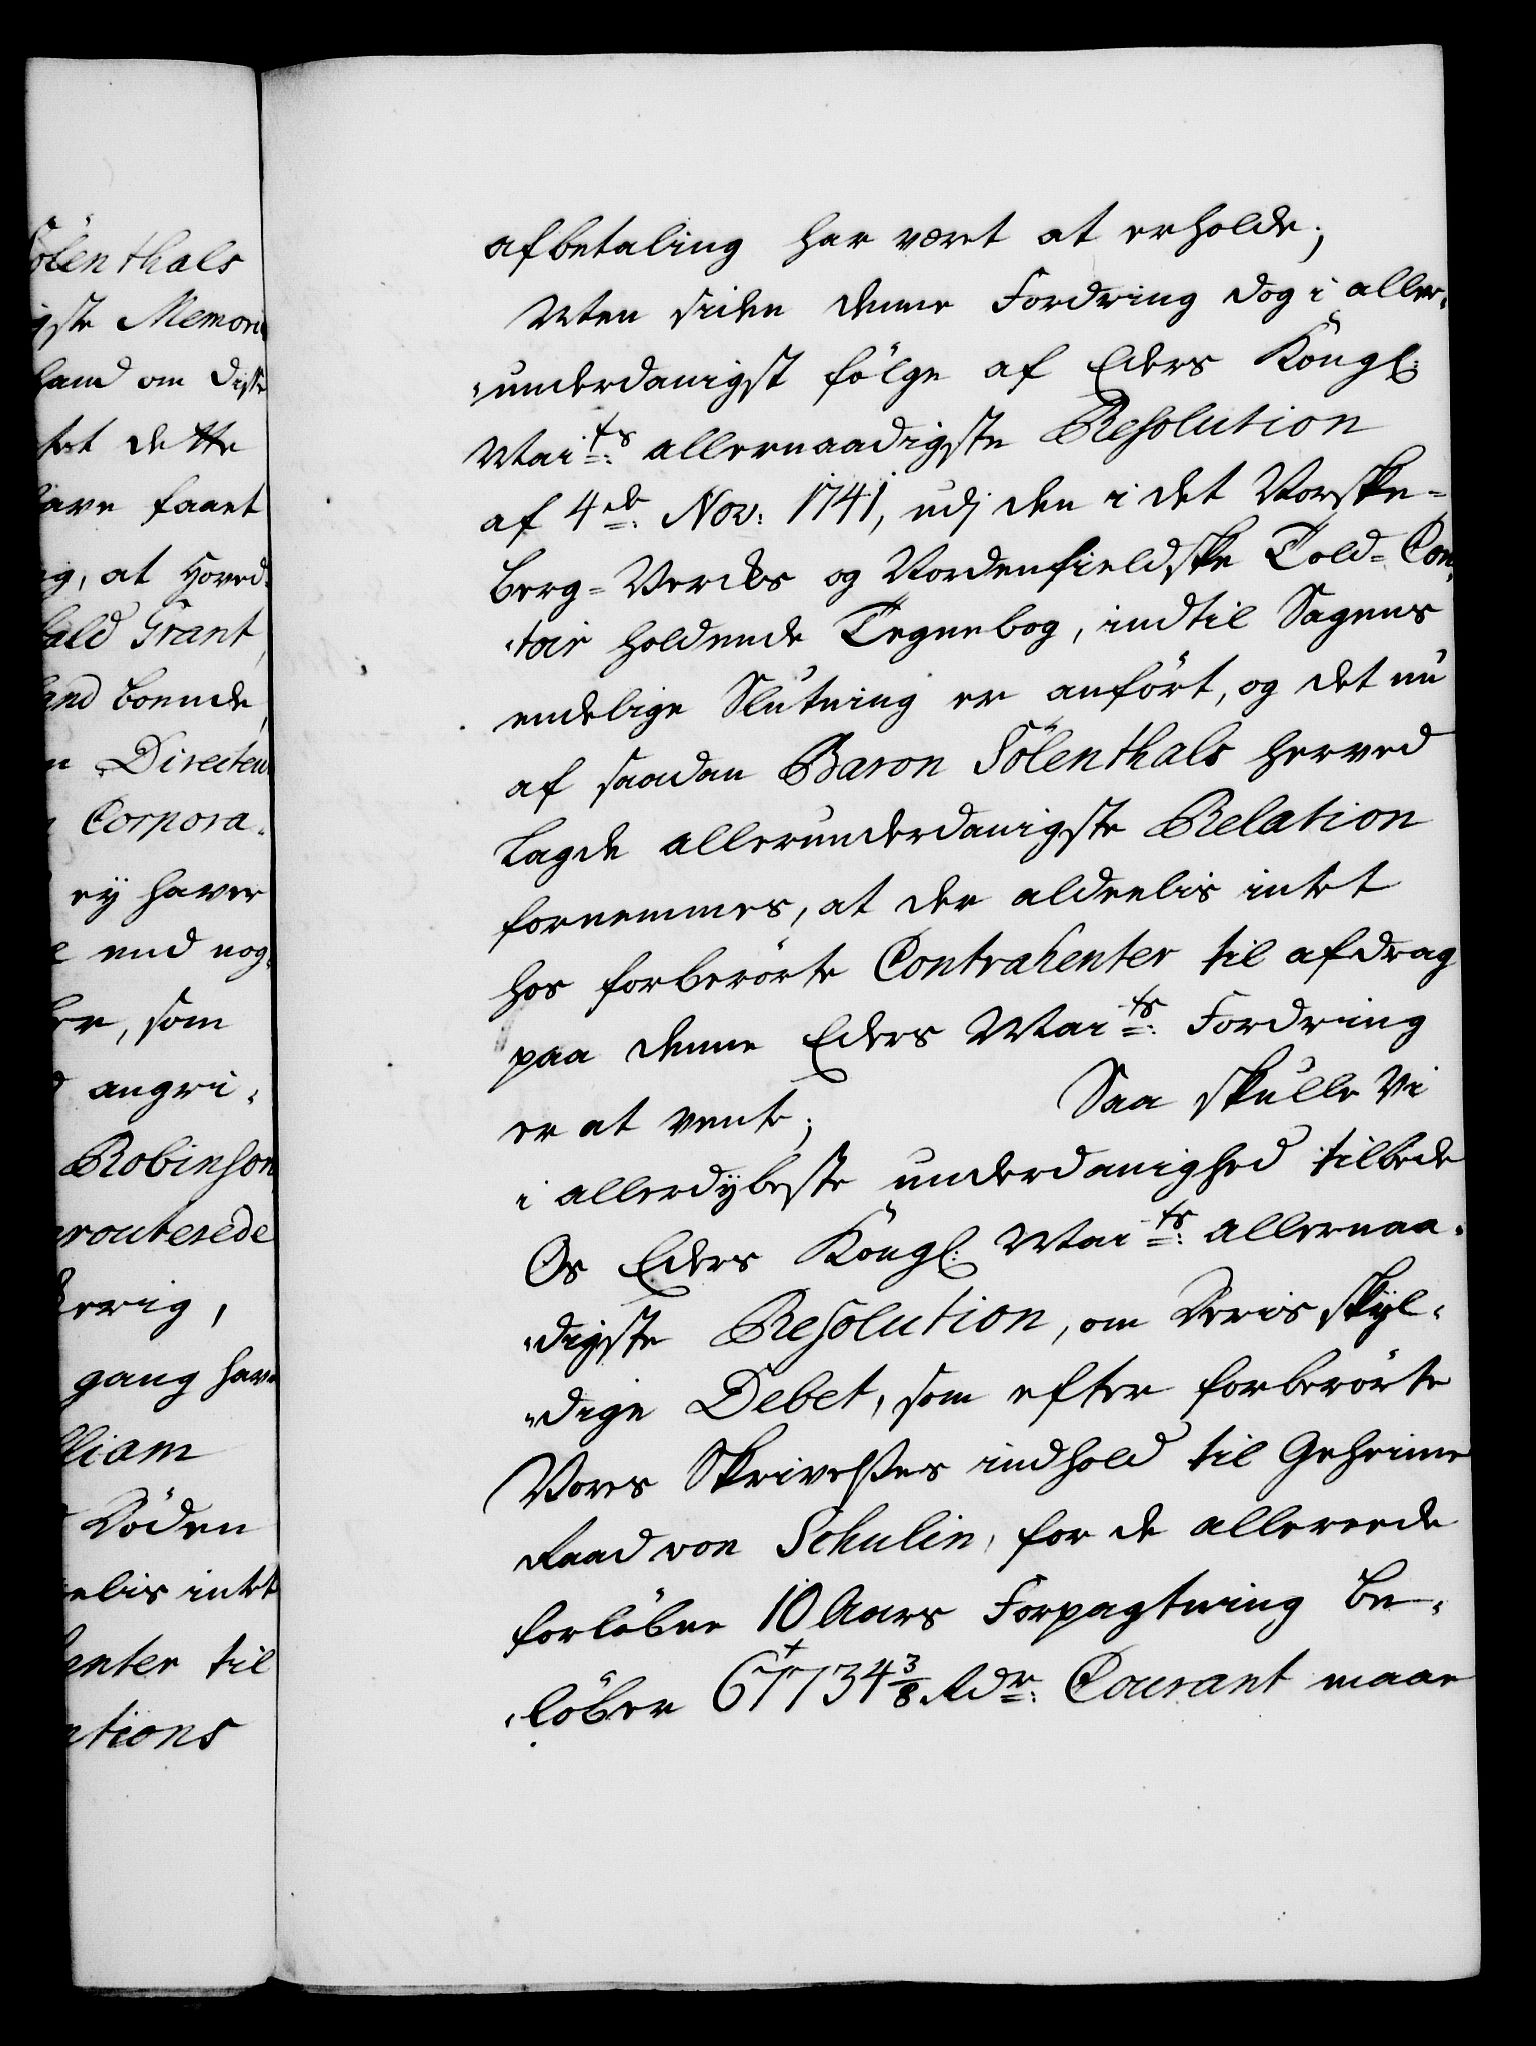 ölenthals
gste Memori
hand om disse
tet dette
have faaet
ig, at Hoved
bald Grant,
and boende,
n Directeu
Corpora-
ey haver
e end nog-
er, som
angri-
Robinson
routerede
gang hav
lliam
Döden
elis intet
enter til
ations
afbetaling har wæret at erholde;
Men siden denne Fordring dog i aller-
underdanigst fölge af Eders Köngl:
Maits: allernaadigste Resolution
af 4de Nov: 1741, udj den i det Norske-
Berg-Verks og Nordenfieldske Told-Con-
toir holdende Tegnebog, indtil Sagens
endelige Slutning er anfört, og det nu
af saadan Baron Sölenthals herved
Lagde allerunderdanigste Relation
fornemmes, at der aldeelis intet
hos forberörte Contrahenter til afdrag
paa denne Eders Maits: Fordring
er at vente; Saa skulle Vi
i allerdybeste underdanighed tilbede
Os Eders Köngl: Maits: allernaa-
digste Resolution, om Deris skyl-
dige Debet, som efter forberörte
Vores Skrivelses indhold til Geheime
Raad von Schulin, for de allereede
forlöbne 10 Aars Forpagtning be-
löber 67734 3/8 Rdr: Courant maae